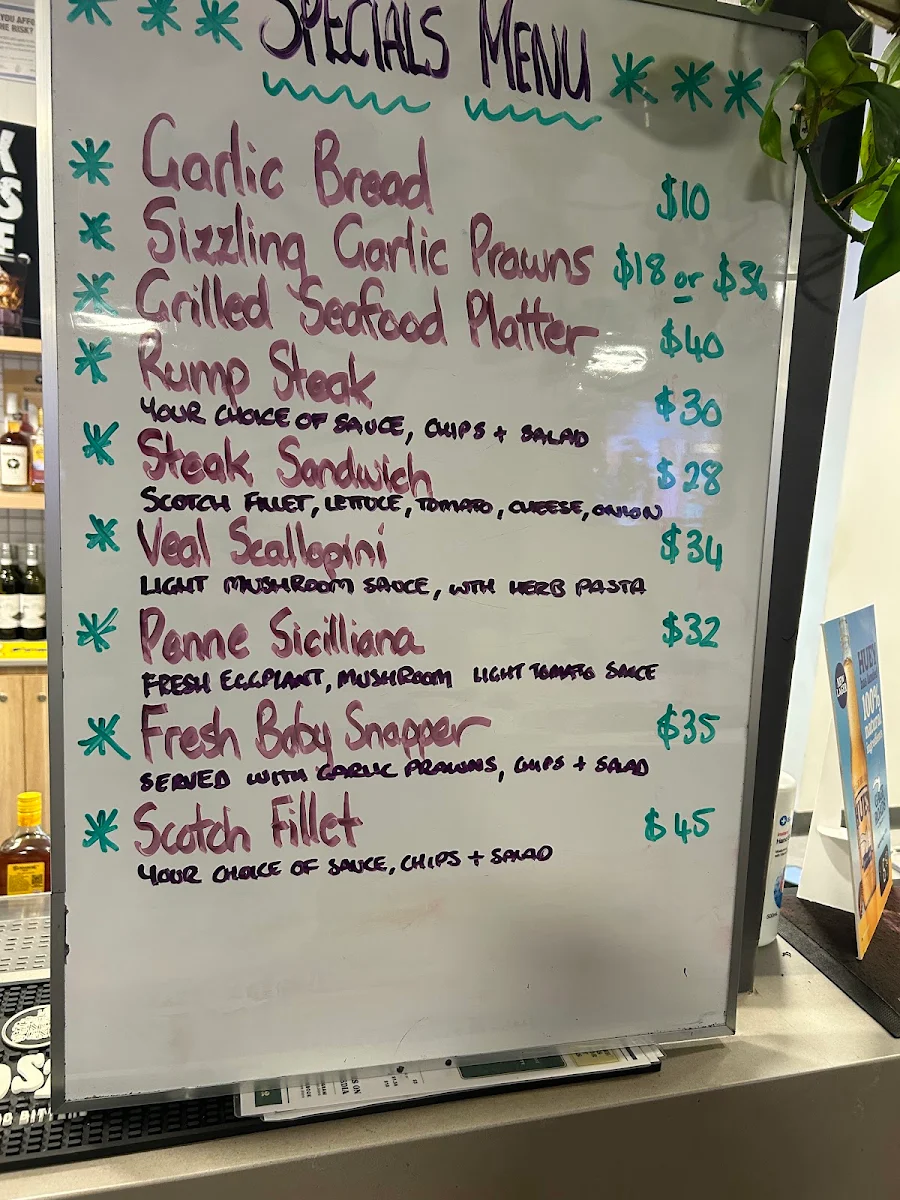 * * * SPECIALS MENU * * *
* Garlic Bread $10
* Sizzling Garlic Prawns $18 or $36
* Grilled Seafood Platter $40
* Rump Steak $30
YOUR CHOICE OF SAUCE, CHIPS + SALAD
* Steak Sandwich $28
SCOTCH FILLET, LETTUCE, TOMATO, CHEESE, ONION
* Veal Scallopini $34
LIGHT MUSHROOM SAUCE, WITH HERB PASTA
* Penne Sicilliana $32
FRESH EGGPLANT, MUSHROOM LIGHT TOMATO SAUCE
* Fresh Baby Snapper $35
SERVED WITH GARLIC PRAWNS, CHIPS + SALAD
* Scotch Fillet $45
YOUR CHOICE OF SAUCE, CHIPS + SALAD
100%